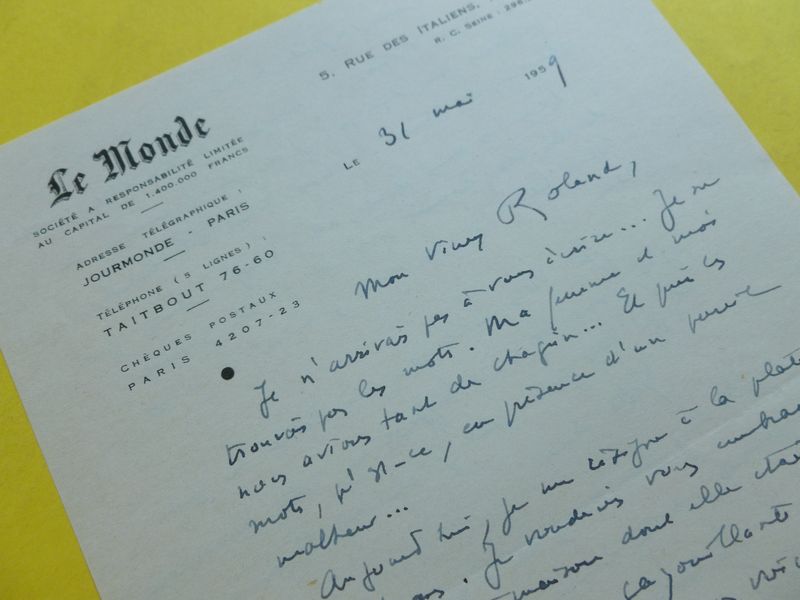 5, RUE DES ITALIENS,
R. C. SEINE : 296.
Le Monde
SOCIÉTÉ A RESPONSABILITÉ LIMITÉE
AU CAPITAL DE 1.400.000 FRANCS
ADRESSE TÉLÉGRAPHIQUE :
JOURMONDE - PARIS
TÉLÉPHONE (5 LIGNES) :
TAITBOUT 76-60
CHÈQUES POSTAUX
PARIS 4207-23
LE 31 mai 1959
Mon vieux Roland,
Je n'arrivais pas à vous écrire... Je ne
trouvais pas les mots. Ma femme et moi
nous avions tant de chagrin... Et puis les
mots, qu'est-ce, en présence d'un pareil
malheur...
Aujourd'hui, je me résigne à la
Je voudrais vous
maison dont elle
gazouillante